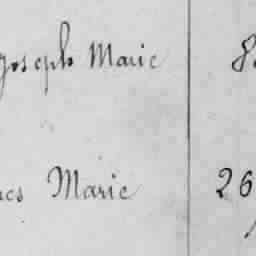 Joseph Marie 8
Marie 26